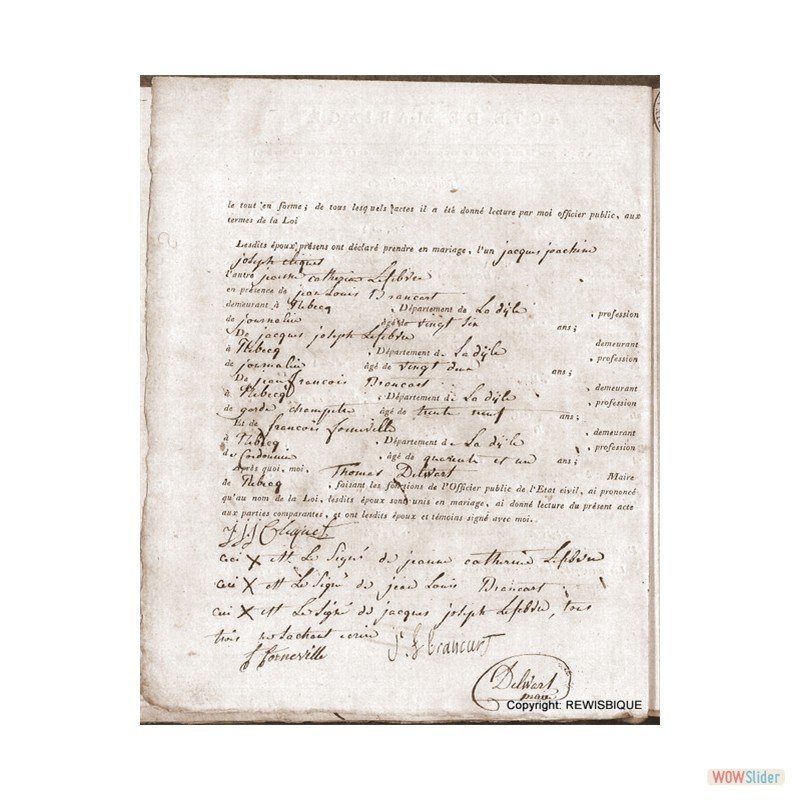 le tout en forme; de tous lesquels actes il a été donné lecture par moi officier public, aux
termes de la Loi
Lesdits époux présens ont déclaré prendre en mariage, l'un jacques joachim
joseph cliquet
l'autre jeanne catherine Lefebvre
en présence de jean Louis Brancart
demeurant à Rebecq , Département de La dÿle , profession
de journalier âgé de vingt six ans;
De jacques joseph Lefebvre demeurant
à Rebecq , Département de La dÿle , profession
de journalier âgé de vingt deux ans;
De jean françois Brancart , demeurant
à Rebecq , Département de La dÿle , profession
de garde champetre âgé de trente neuf ans;
Et de françois forneville , demeurant
à Rebecq , Département de La dÿle , profession
de Cordonnier , âgé de quarente et un ans;
Après quoi, moi, Thomas Delwart Maire
de Rebecq , faisant les fonctions de l'Officier public de l'Etat civil, ai prononcé
qu'au nom de la Loi, lesdits époux sont unis en mariage, ai donné lecture du présent acte
aux parties comparantes, et ont lesdits époux et témoins signé avec moi.
J.J.J Cliquet
ceci X est Le Signé de jeanne catherine Lefebvre
ceci X est Le Signé de jean Louis Brancart
ceci X est Le Signé de jacques joseph Lefebvre, tous
trois ne Sachant ecrire
f forneville J f Brancart
Delwart
maire
Copyright: REWISBIQUE
WOWSlider